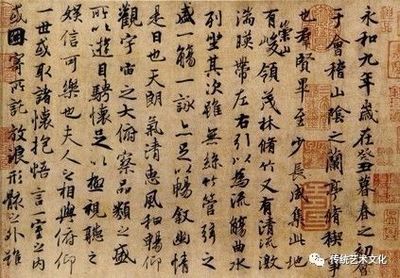 永和九年歲在癸丑暮春之初會
于會稽山陰之蘭亭脩稧事
也羣賢畢至少長咸集此地
有崇山峻領茂林脩竹又有清流激
湍暎帶左右引以為流觴曲水
列坐其次雖無絲竹管弦之
盛一觴一詠亦足以暢敘幽情
是日也天朗氣清惠風和暢仰
觀宇宙之大俯察品類之盛
所以遊目騁懷足以極視聽之
娛信可樂也夫人之相與俯仰
一世或取諸懷抱悟言一室之內
或因寄所託放浪形骸之外雖
传统艺术文化